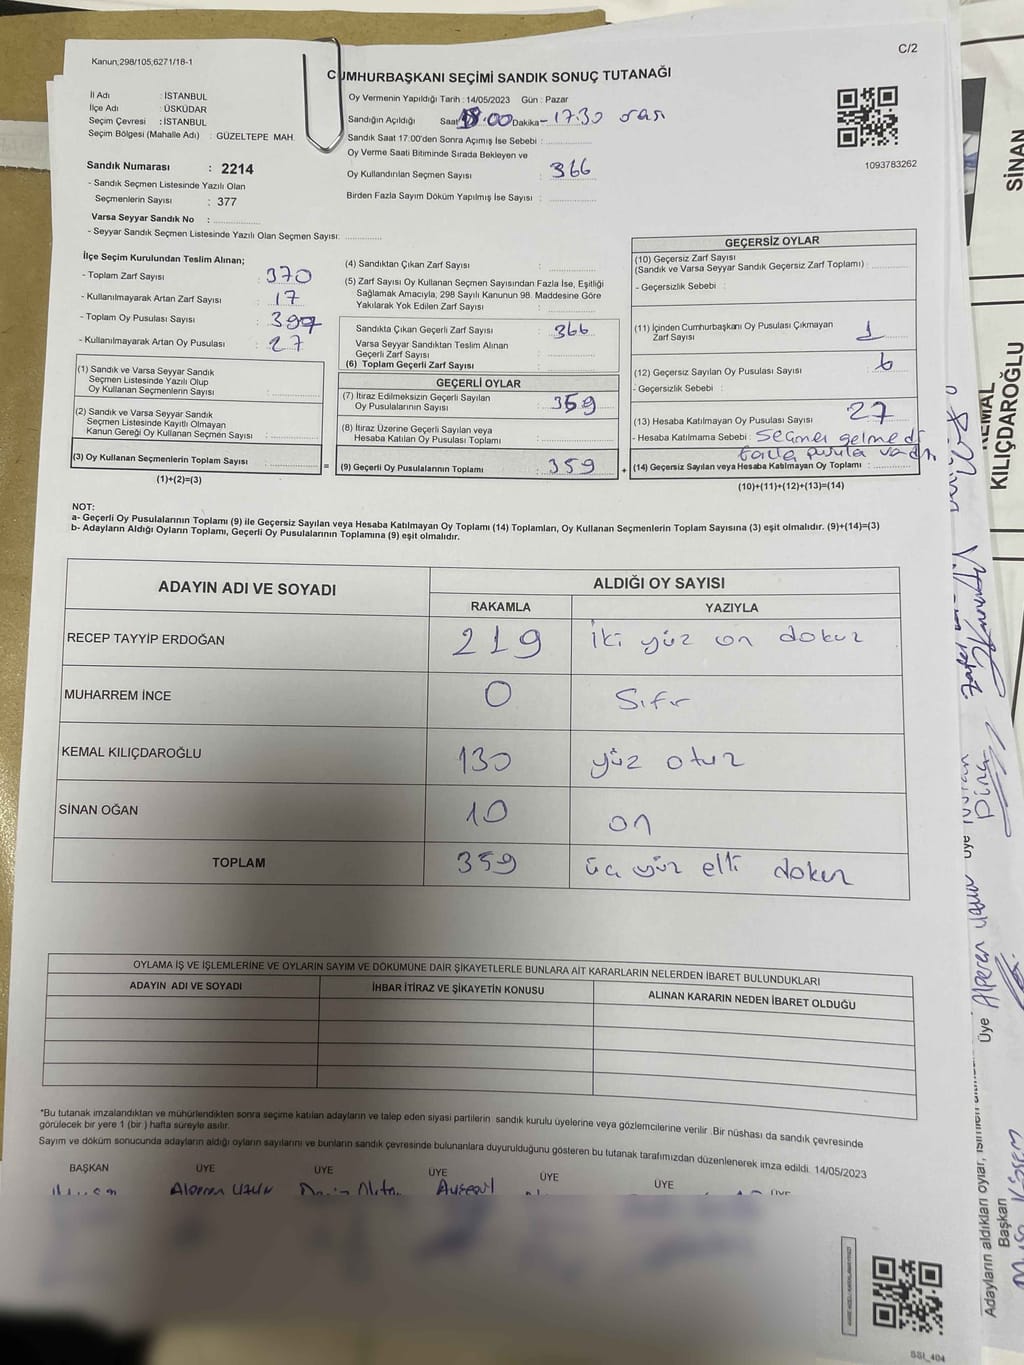 Kanun;298/105;6271/18-1
C/2
CUMHURBAŞKANI SEÇİMİ SANDIK SONUÇ TUTANAĞI
İl Adı : İSTANBUL
İlçe Adı : ÜSKÜDAR
Seçim Çevresi : İSTANBUL
Seçim Bölgesi (Mahalle Adı) : GÜZELTEPE MAH.
Sandık Numarası : 2214
- Sandık Seçmen Listesinde Yazılı Olan
Seçmenlerin Sayısı : 377
Varsa Seyyar Sandık No :
- Seyyar Sandık Seçmen Listesinde Yazılı Olan Seçmen Sayısı:
Oy Vermenin Yapıldığı Tarih : 14/05/2023 Gün : Pazar
Sandığın Açıldığı Saat 18:00 Dakika - 17:30
Sandık Saat 17:00'den Sonra Açımış İse Sebebi :
Oy Verme Saati Bitiminde Sırada Bekleyen ve
Oy Kullandırılan Seçmen Sayısı : 366
Birden Fazla Sayım Döküm Yapılmış İse Sayısı :
1093783262
İlçe Seçim Kurulundan Teslim Alınan;
- Toplam Zarf Sayısı : 370
- Kullanılmayarak Artan Zarf Sayısı : 17
- Toplam Oy Pusulası Sayısı : 397
- Kullanılmayarak Artan Oy Pusulası : 27
(1) Sandık ve Varsa Seyyar Sandık
Seçmen Listesinde Yazılı Olup
Oy Kullanan Seçmenlerin Sayısı :
(2) Sandık ve Varsa Seyyar Sandık
Seçmen Listesinde Kayıtlı Olmayan
Kanun Gereği Oy Kullanan Seçmen Sayısı :
(3) Oy Kullanan Seçmenlerin Toplam Sayısı :
(1)+(2)=(3)
(4) Sandıktan Çıkan Zarf Sayısı :
(5) Zarf Sayısı Oy Kullanan Seçmen Sayısından Fazla İse, Eşitliği
Sağlamak Amacıyla, 298 Sayılı Kanunun 98. Maddesine Göre
Yakılarak Yok Edilen Zarf Sayısı :
Sandıkta Çıkan Geçerli Zarf Sayısı : 366
Varsa Seyyar Sandıktan Teslim Alınan
Geçerli Zarf Sayısı :
(6) Toplam Geçerli Zarf Sayısı :
GEÇERLİ OYLAR
(7) İtiraz Edilmeksizin Geçerli Sayılan
Oy Pusulalarının Sayısı : 359
(8) İtiraz Üzerine Geçerli Sayılan veya
Hesaba Katılan Oy Pusulası Toplamı :
= (9) Geçerli Oy Pusulalarının Toplamı : 359 +
GEÇERSİZ OYLAR
(10) Geçersiz Zarf Sayısı
(Sandık ve Varsa Seyyar Sandık Geçersiz Zarf Toplamı) :
- Geçersizlik Sebebi :
(11) İçinden Cumhurbaşkanı Oy Pusulası Çıkmayan
Zarf Sayısı : 1
(12) Geçersiz Sayılan Oy Pusulası Sayısı : 6
- Geçersizlik Sebebi :
(13) Hesaba Katılmayan Oy Pusulası Sayısı : 27
- Hesaba Katılmama Sebebi : Seçmen gelmedi
fazla pusula vardı
(14) Geçersiz Sayılan veya Hesaba Katılmayan Oy Toplamı :
(10)+(11)+(12)+(13)=(14)
NOT:
a- Geçerli Oy Pusulalarının Toplamı (9) ile Geçersiz Sayılan veya Hesaba Katılmayan Oy Toplamı (14) Toplamları, Oy Kullanan Seçmenlerin Toplam Sayısına (3) eşit olmalıdır. (9)+(14)=(3)
b- Adayların Aldığı Oyların Toplamı, Geçerli Oy Pusulalarının Toplamına (9) eşit olmalıdır.
ADAYIN ADI VE SOYADI
ALDIĞI OY SAYISI
RAKAMLA YAZIYLA
RECEP TAYYİP ERDOĞAN 219 iki yüz on dokuz
MUHARREM İNCE 0 Sıfır
KEMAL KILIÇDAROĞLU 130 yüz otuz
SİNAN OĞAN 10 on
TOPLAM 359 üç yüz elli dokuz
OYLAMA İŞ VE İŞLEMLERİNE VE OYLARIN SAYIM VE DÖKÜMÜNE DAİR ŞİKAYETLERLE BUNLARA AİT KARARLARIN NELERDEN İBARET BULUNDUKLARI
ADAYIN ADI VE SOYADI İHBAR İTİRAZ VE ŞİKAYETİN KONUSU ALINAN KARARIN NEDEN İBARET OLDUĞU
*Bu tutanak imzalandıktan ve mühürlendikten sonra seçime katılan adayların ve talep eden siyasi partilerin sandık kurulu üyelerine veya gözlemcilerine verilir .Bir nüshası da sandık çevresinde
görülecek bir yere 1 (bir ) hafta süreyle asılır.
Sayım ve döküm sonucunda adayların aldığı oyların sayılarını ve bunların sandık çevresinde bulunanlara duyurulduğunu gösteren bu tutanak tarafımızdan düzenlenerek imza edildi. 14/05/2023
BAŞKAN ÜYE ÜYE ÜYE ÜYE ÜYE ÜYE
Alperen Uzun
SSI_404
SİNAN
KEMAL
KILIÇDAROĞLU
Adayların aldıkları oylar,
Başkan
Üye Alperen Uzun Üye